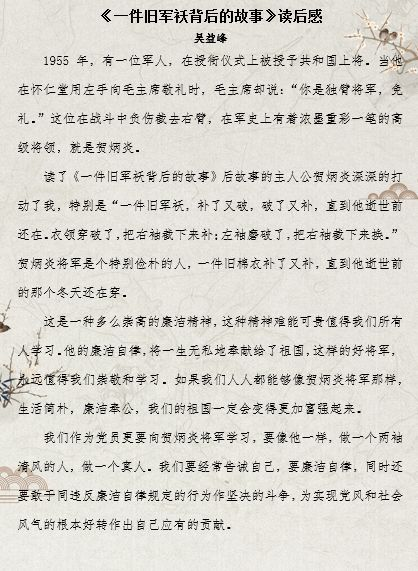 《一件旧军袄背后的故事》读后感
吴益峰
1955 年，有一位军人，在授衔仪式上被授予共和国上将。当他
在怀仁堂用左手向毛主席敬礼时，毛主席却说：“你是独臂将军，免
礼。”这位在战斗中负伤截去右臂，在军史上有着浓墨重彩一笔的高
级将领，就是贺炳炎。
读了《一件旧军袄背后的故事》后故事的主人公贺炳炎深深的打
动了我，特别是“一件旧军袄，补了又破，破了又补，直到他逝世前
还在。衣领穿破了，把右袖截下来补；左袖磨破了，把右袖截下来换。”
贺炳炎将军是个特别俭朴的人，一件旧棉衣补了又补，直到他逝世前
的那个冬天还在穿。
这是一种多么崇高的廉洁精神，这种精神难能可贵值得我们所有
人学习。他的廉洁自律，将一生无私地奉献给了祖国，这样的好将军，
永远值得我们崇敬和学习。如果我们人人都能够像贺炳炎将军那样，
生活简朴，廉洁奉公，我们的祖国一定会变得更加富强起来。
我们作为党员更要向贺炳炎将军学习，要像他一样，做一个两袖
清风的人，做一个真人。我们要经常告诫自己，要廉洁自律，同时还
要敢于同违反廉洁自律规定的行为作坚决的斗争，为实现党风和社会
风气的根本好转作出自己应有的贡献。